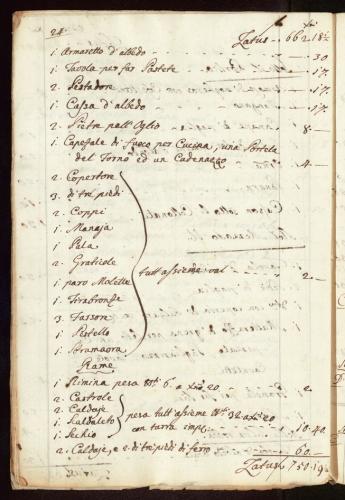 24.
Latus 662.18½
1. Armaretto d'albedo 30
1. Tavola per far Pastete 17.
2. Pestadore 17.
1. Cassa d'albedo 17.
2. Pietre pall'Oglio 8
1. Capefale di fuoco per Cucina, una Portela
del Torno ed un Cadenazzo 4
2. Copertore
3. di tre piedi
2. Coppi
1. Manaja
1. Pala
2. Graticole
1. paro Molette
tutt'assieme val 2
1. Tirabronze
3. Tassore
1. Pestello
1. Stramaora
Rame
1. Ramina pesa 6. a 20 2.
2. Castrole
2. Caldaje
1. Scaldaleto
1. Sechio
pesa tutt'assieme 32 a 20
con tarra 10.40
2. Caldaje, e 2. di tre piedi di ferro 60
Latus 750.19